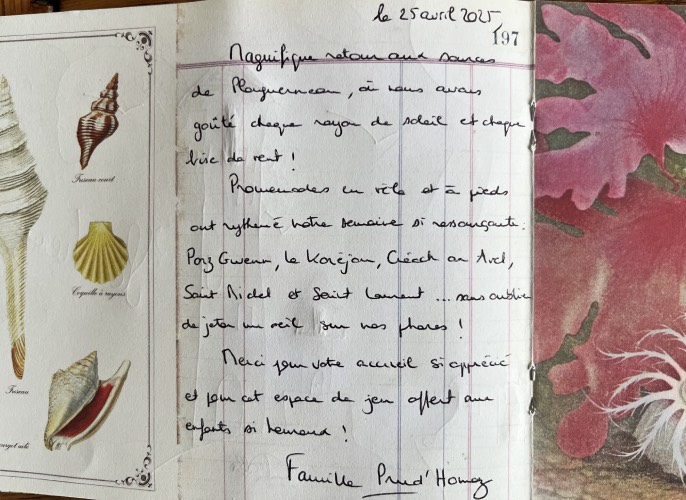 le 25 avril 2025
197
Magnifique retour aux sources
de Plouguerneau, où nous avons
goûté chaque rayon de soleil et chaque
brise de vent !
Promenades en vélo et à pieds
ont rythmé notre semaine si ressourçante.
Porz Gwenn, le Koréjou, Créach an Avel,
Saint Michel et Saint Laurent ... sans oublier
de jeter un œil sur nos phares !
Merci pour votre accueil si apprécié
et pour cet espace de jeu offert aux
enfants si heureux !
Famille Prud'Homoz
Fuseau court
Coquille à rayons
Fuseau